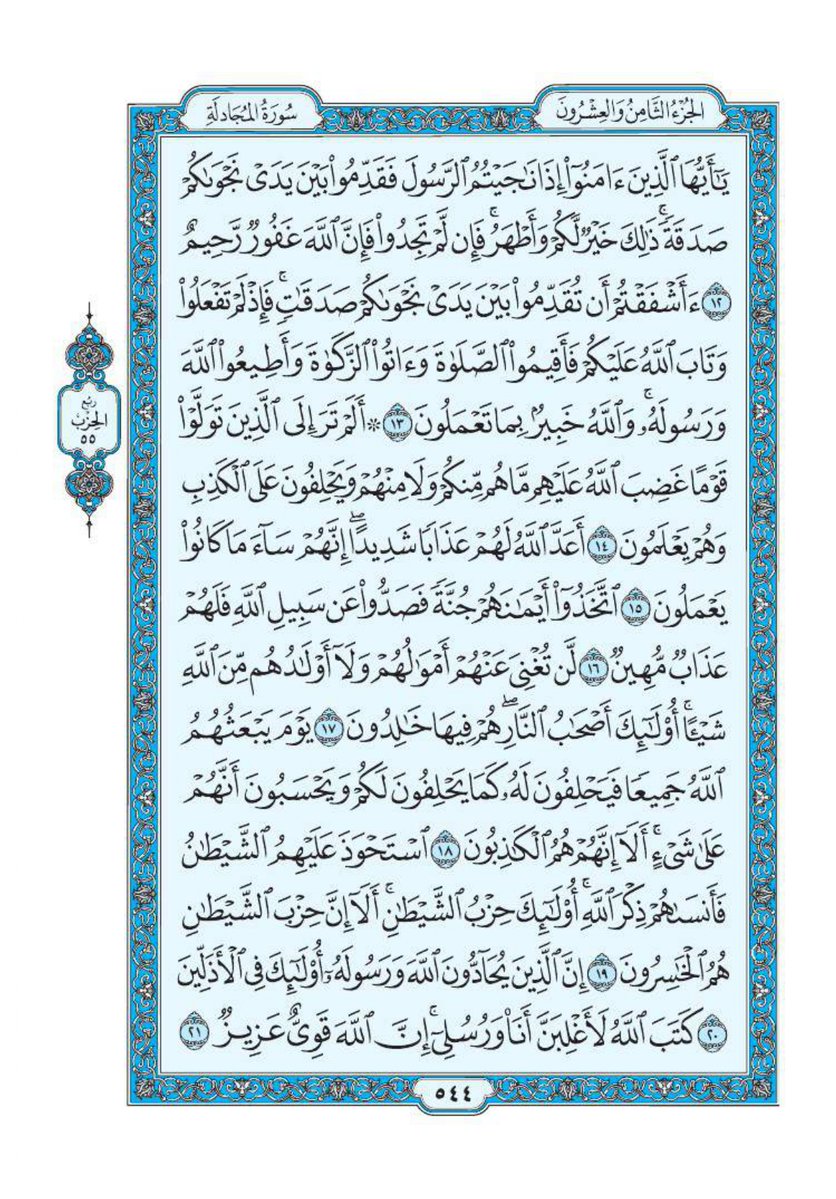 الجُزْءُ الثَّامِنُ وَالعِشْرُونَ
سُورَةُ المُجَادلَةِ
يَٰٓأَيُّهَا ٱلَّذِينَ ءَامَنُوٓاْ إِذَا نَٰجَيۡتُمُ ٱلرَّسُولَ فَقَدِّمُواْ بَيۡنَ يَدَيۡ نَجۡوَىٰكُمۡ
صَدَقَةٗۚ ذَٰلِكَ خَيۡرٞ لَّكُمۡ وَأَطۡهَرُۚ فَإِن لَّمۡ تَجِدُواْ فَإِنَّ ٱللَّهَ غَفُورٞ رَّحِيمٌ
١٢ ءَأَشۡفَقۡتُمۡ أَن تُقَدِّمُواْ بَيۡنَ يَدَيۡ نَجۡوَىٰكُمۡ صَدَقَٰتٖۚ فَإِذۡ لَمۡ تَفۡعَلُواْ
وَتَابَ ٱللَّهُ عَلَيۡكُمۡ فَأَقِيمُواْ ٱلصَّلَوٰةَ وَءَاتُواْ ٱلزَّكَوٰةَ وَأَطِيعُواْ ٱللَّهَ
وَرَسُولَهُۥۚ وَٱللَّهُ خَبِيرُۢ بِمَا تَعۡمَلُونَ ١٣ ۞أَلَمۡ تَرَ إِلَى ٱلَّذِينَ تَوَلَّوۡاْ
قَوۡمًا غَضِبَ ٱللَّهُ عَلَيۡهِم مَّا هُم مِّنكُمۡ وَلَا مِنۡهُمۡ وَيَحۡلِفُونَ عَلَى ٱلۡكَذِبِ
وَهُمۡ يَعۡلَمُونَ ١٤ أَعَدَّ ٱللَّهُ لَهُمۡ عَذَابٗا شَدِيدًاۖ إِنَّهُمۡ سَآءَ مَا كَانُواْ
يَعۡمَلُونَ ١٥ ٱتَّخَذُوٓاْ أَيۡمَٰنَهُمۡ جُنَّةٗ فَصَدُّواْ عَن سَبِيلِ ٱللَّهِ فَلَهُمۡ
عَذَابٞ مُّهِينٞ ١٦ لَّن تُغۡنِيَ عَنۡهُمۡ أَمۡوَٰلُهُمۡ وَلَآ أَوۡلَٰدُهُم مِّنَ ٱللَّهِ
شَيۡـًٔاۚ أُوْلَٰٓئِكَ أَصۡحَٰبُ ٱلنَّارِۖ هُمۡ فِيهَا خَٰلِدُونَ ١٧ يَوۡمَ يَبۡعَثُهُمُ
ٱللَّهُ جَمِيعٗا فَيَحۡلِفُونَ لَهُۥ كَمَا يَحۡلِفُونَ لَكُمۡ وَيَحۡسَبُونَ أَنَّهُمۡ
عَلَىٰ شَيۡءٍۚ أَلَآ إِنَّهُمۡ هُمُ ٱلۡكَٰذِبُونَ ١٨ ٱسۡتَحۡوَذَ عَلَيۡهِمُ ٱلشَّيۡطَٰنُ
فَأَنسَىٰهُمۡ ذِكۡرَ ٱللَّهِۚ أُوْلَٰٓئِكَ حِزۡبُ ٱلشَّيۡطَٰنِۚ أَلَآ إِنَّ حِزۡبَ ٱلشَّيۡطَٰنِ
هُمُ ٱلۡخَٰسِرُونَ ١٩ إِنَّ ٱلَّذِينَ يُحَآدُّونَ ٱللَّهَ وَرَسُولَهُۥٓ أُوْلَٰٓئِكَ فِي ٱلۡأَذَلِّينَ
٢٠ كَتَبَ ٱللَّهُ لَأَغۡلِبَنَّ أَنَا۠ وَرُسُلِيٓۚ إِنَّ ٱللَّهَ قَوِيٌّ عَزِيزٞ ٢١
رُبع
الحِزْبُ
٥٥
٥٤٤